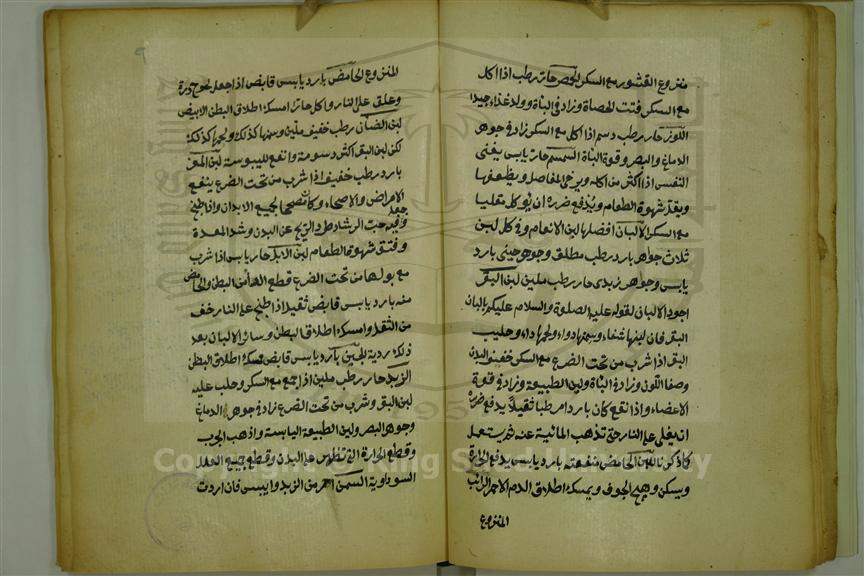 منزوع القشور مع السكر الحمص حار رطب اذا اكل
مع السكر فتت الحصاة وزاد في الباة وولد غذاء جيدا
اللوز حار رطب دسم اذا اكل مع السكر زاد في جوهر
الدماغ والبصر وقوة الباة السمسم حار يابس يغثى
النفس اذا اكثر من اكله ويرخى المفاصل ويضعفها
ويفقد شهوة الطعام ويدفع ضرره ان يوكل مقليا
مع السكر الالبان افضلها لبن الانعام وفي كل لبن
ثلاث جواهر بارد رطب مطلق وجوهر جبنى بارد
يابس وجوهر زبدى حار رطب ملين لبن البقر
اجود الالبان لقوله عليه الصلوة والسلام عليكم بالبان
البقر فان لبنها شفاء وسمنها دواء ولحمها داء وحليب
البقر اذا شرب من تحت الضرع مع السكر خصب البدن
وصفا اللون وزاد في الباة ولين الطبيعة وزاد في قوة
الاعضاء واذا نقع كان باردا مرطبا ثقيلا يدفع ضرره
ان يغلى على النار حتى تذهب المائية عنه ثم يستعمل
كما ذكرنا اللبن الحامض منفعته بارد يابس يدفع الحرارة
ويسكن وهج الجوف ويمسك اطلاق الدم الاحمر الرائب
المنزوع
المنزوع الحامض بارد يابس قابض اذا جعل
وغلق على النار واكل حارا امسك اطلاق البطن الابيض
لبن الضان رطب خفيف ملين وسمنها كذلك ولحمها كذلك
لكن لبن البقر اكثر دسومة وانفع لليبوسة لبن المعز
بارد رطب خفيف اذا شرب من تحت الضرع ينفع
الامراض والاصحاء وكان مصحا لجميع الابدان واذا طبخ
وجعل فيه حب الرشاد طرد الريح عن البدن وشد المعدة
وفتق شهوة الطعام لبن الابل حار يابس اذا شرب
مع بولها من تحت الضرع قطع الماء من البطن والحامض
منه بارد يابس قابض ثقيل اذا طبخ على النار خف
من الثقل وامسك اطلاق البطن وسائر الالبان بعد
ذلك ردية الجبن بارد يابس قابض يمسك اطلاق البطن
الزبد حار رطب ملين اذا جمع مع السكر وحلب عليه
لبن البقر وشرب من تحت الضرع زاد في جوهر الدماغ
وجوهر البصر ولين الطبيعة اليابسة واذهب الجرب
وقطع الحرارة التي تظهر على البدن وقطع جميع العلل
السوداوية السمن احر من الزبد وايبس فان اردت
Copyright © King Saud University